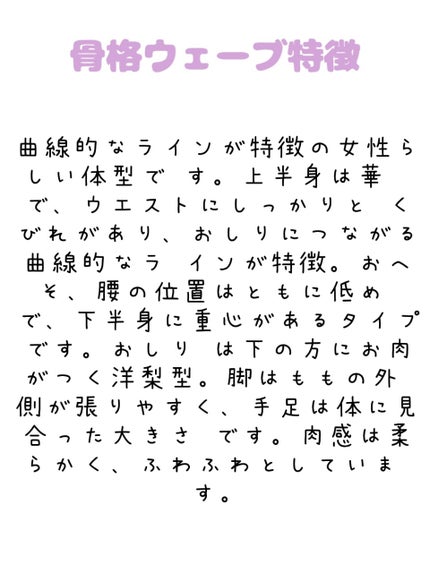 骨格ウェーブ特徴
曲線的なラインが特徴の女性ら
しい体型で す。上半身は華
で、ウエストにしっかりと く
びれがあり、おしりにつながる
曲線的なラ インが特徴。おへ
そ、腰の位置はともに低め
で、下半身に重心があるタイプ
です。おしり は下の方にお肉
がつく洋梨型。脚はももの外
側が張りやすく、手足は体に見
合った大きさ です。肉感は柔
らかく、ふわふわとしていま
す。